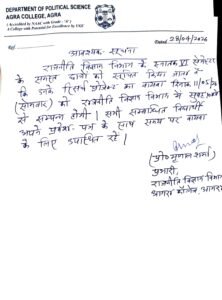 DEPARTMENT OF POLITICAL SCIENCE
AGRA COLLEGE, AGRA
( Accredited by NAAC with Grade : 'A' )
A College with Potential for Excellence by UGC
Ref. Dated 28/04/2026
आवश्यक-सूचना
राजनीति विज्ञान विभाग के स्नातक VI सेमेस्टर
के समस्त छात्रों को सूचित किया जाता है
कि उनके रिसर्च प्रोजेक्ट का वायवा दिनांक 11/05/20
(सोमवार) को राजनीति विज्ञान विभाग में सुबह
से सम्पन्न होगी। सभी सम्बन्धित विद्यार्थी
अपने प्रवेश-पत्र के साथ समय पर वायवा
के लिए उपस्थित रहें।
(प्रो० मृणाल शर्मा)
प्रभारी,
राजनीति विज्ञान विभाग
आगरा कॉलेज, आगरा